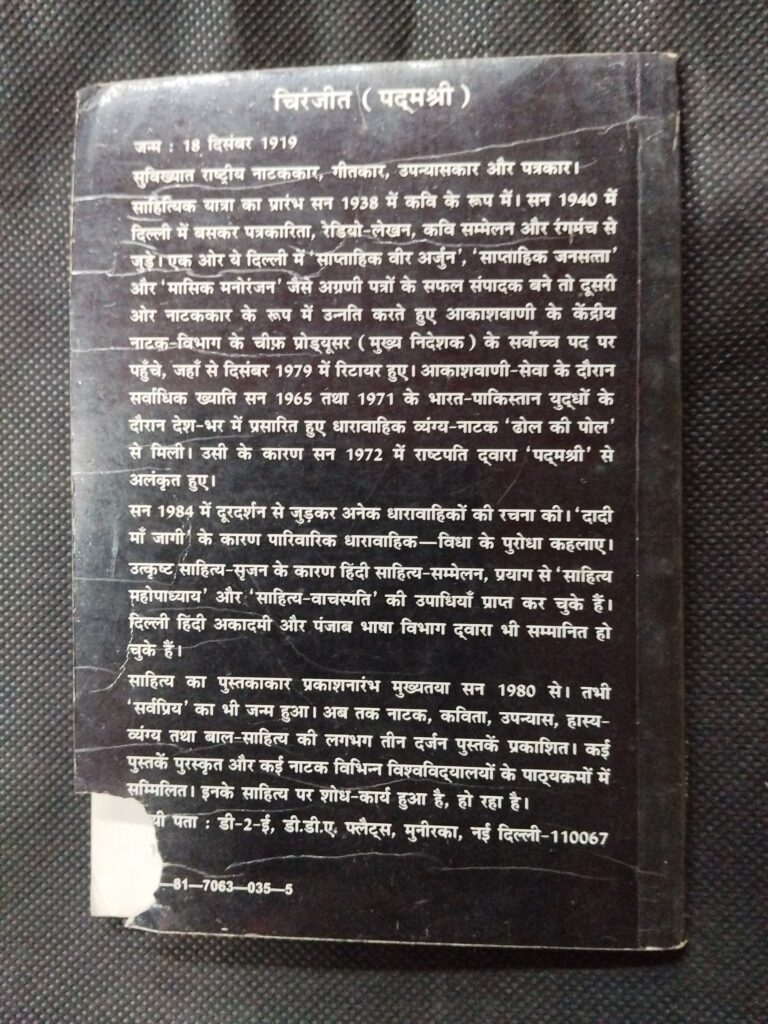 चिरंजीत ( पद्मश्री )
जन्म : 18 दिसंबर 1919
सुविख्यात राष्ट्रीय नाटककार, गीतकार, उपन्यासकार और पत्रकार।
साहित्यिक यात्रा का प्रारंभ सन 1938 में कवि के रूप में। सन 1940 में
दिल्ली में बसकर पत्रकारिता, रेडियो-लेखन, कवि सम्मेलन और रंगमंच से
जुड़े। एक ओर ये दिल्ली में ‘साप्ताहिक वीर अर्जुन’, ‘साप्ताहिक जनसत्ता’
और ‘मासिक मनोरंजन’ जैसे अग्रणी पत्रों के सफल संपादक बने तो दूसरी
ओर नाटककार के रूप में उन्नति करते हुए आकाशवाणी के केंद्रीय
नाटक-विभाग के चीफ़ प्रोड्यूसर ( मुख्य निदेशक ) के सर्वोच्च पद पर
पहुँचे, जहाँ से दिसंबर 1979 में रिटायर हुए। आकाशवाणी-सेवा के दौरान
सर्वाधिक ख्याति सन 1965 तथा 1971 के भारत-पाकिस्तान युद्धों के
दौरान देश-भर में प्रसारित हुए धारावाहिक व्यंग्य-नाटक ‘ढोल की पोल’
से मिली। उसी के कारण सन 1972 में राष्टपति द्वारा ‘पद्मश्री’ से
अलंकृत हुए।
सन 1984 में दूरदर्शन से जुड़कर अनेक धारावाहिकों की रचना की। ‘दादी
माँ जागी’ के कारण पारिवारिक धारावाहिक—विधा के पुरोधा कहलाए।
उत्कृष्ट साहित्य-सृजन के कारण हिंदी साहित्य-सम्मेलन, प्रयाग से ‘साहित्य
महोपाध्याय’ और ‘साहित्य-वाचस्पति’ की उपाधियाँ प्राप्त कर चुके हैं।
दिल्ली हिंदी अकादमी और पंजाब भाषा विभाग द्वारा भी सम्मानित हो
चुके हैं।
साहित्य का पुस्तकाकार प्रकाशनारंभ मुख्यतया सन 1980 से। तभी
‘सर्वप्रिय’ का भी जन्म हुआ। अब तक नाटक, कविता, उपन्यास, हास्य-
व्यंग्य तथा बाल-साहित्य की लगभग तीन दर्जन पुस्तकें प्रकाशित। कई
पुस्तकें पुरस्कृत और कई नाटक विभिन्न विश्वविद्यालयों के पाठ्यक्रमों में
सम्मिलित। इनके साहित्य पर शोध-कार्य हुआ है, हो रहा है।
पता : डी-2-ई, डी.डी.ए. फ्लैट्स, मुनीरका, नई दिल्ली-110067
—81—7063—035—5